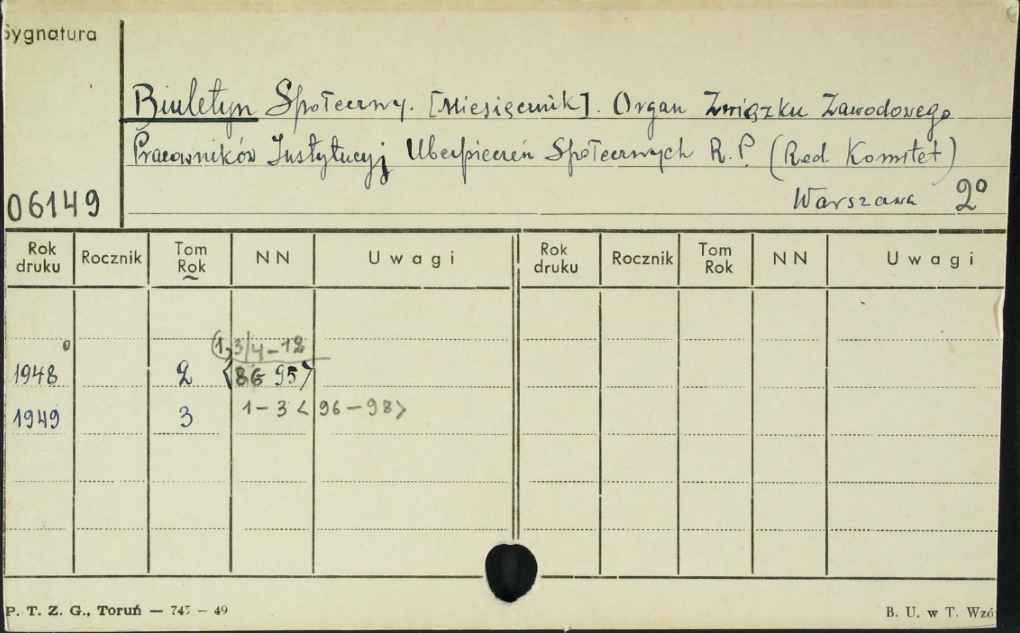 Sygnatura
Biuletyn Społeczny. [Miesięcznik]. Organ Związku Zawodowego
Pracowników Instytucyj Ubezpieczeń Społecznych R. P. (Red. Komitet)
06149 Warszawa 2º
Rok druku Rocznik Tom Rok NN Uwagi Rok druku Rocznik Tom Rok NN Uwagi
1, 3/4-12
1948 2 <86 95>
1949 3 1-3 <96-98>
P. T. Z. G., Toruń — 747 — 49 B. U. w T. Wzó